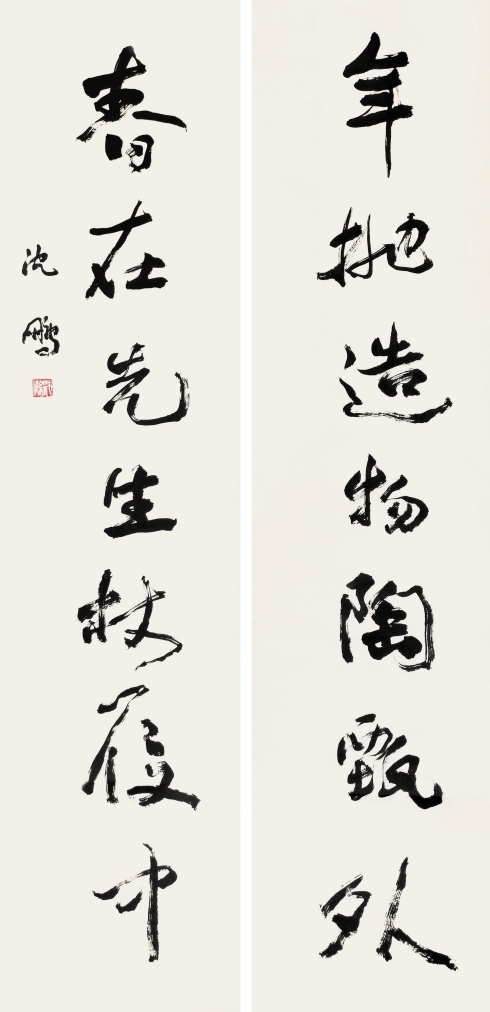 年抛造物陶甄外
春在先生杖履中
沈鹏